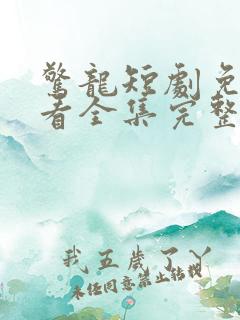 驚龍短劇免
看全集完整
我五歲了丫
未任同意禁止转载